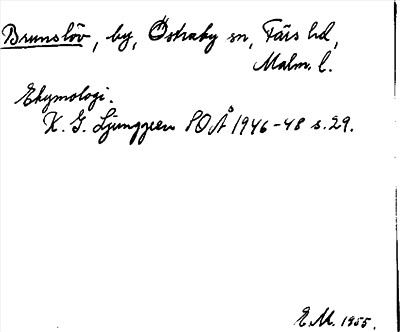 Brunslöv, by, Östraby sn, Färs hd,
Malm. l.
Etymologi.
K. G. Ljunggren SOÅ 1946-48 s. 29.
E.M. 1955.